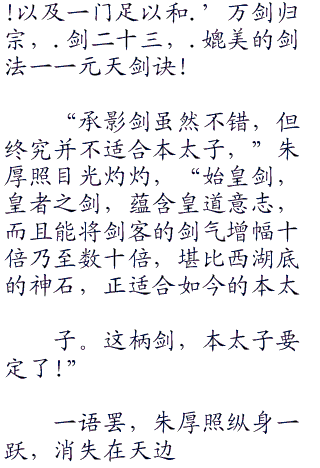 !以及一门足以和.’万剑归
宗,.剑二十三,.媲美的剑
法一一元天剑诀!
“承影剑虽然不错，但
终究并不适合本太子，”朱
厚照目光灼灼，“始皇剑，
皇者之剑，蕴含皇道意志，
而且能将剑客的剑气增幅十
倍乃至数十倍，堪比西湖底
的神石，正适合如今的本太
子。这柄剑，本太子要
定了!”
一语罢，朱厚照纵身一
跃，消失在天边